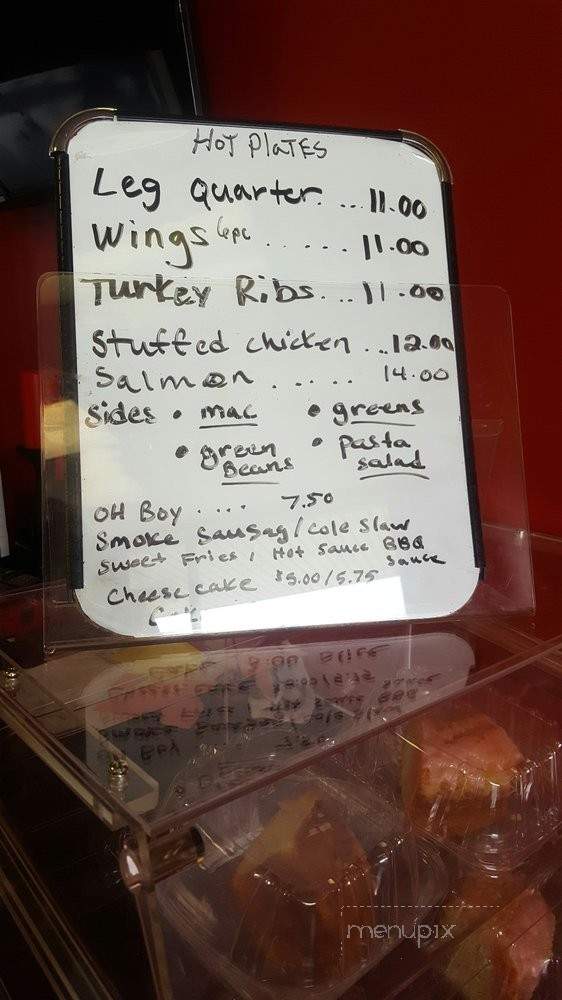 HOT PLATES
Leg Quarter. ...11.00
Wings 6pc ..... 11.00
Turkey Ribs... 11.00
Stuffed chicken ...12.00
Salmon ..... 14.00
Sides • mac • greens
• green Beans • pasta salad
OH Boy .... 7.50
Smoke Sausag/Cole Slaw
Sweet Fries, Hot Sauce BBQ Sauce
Cheese cake $5.00/5.75
menupix